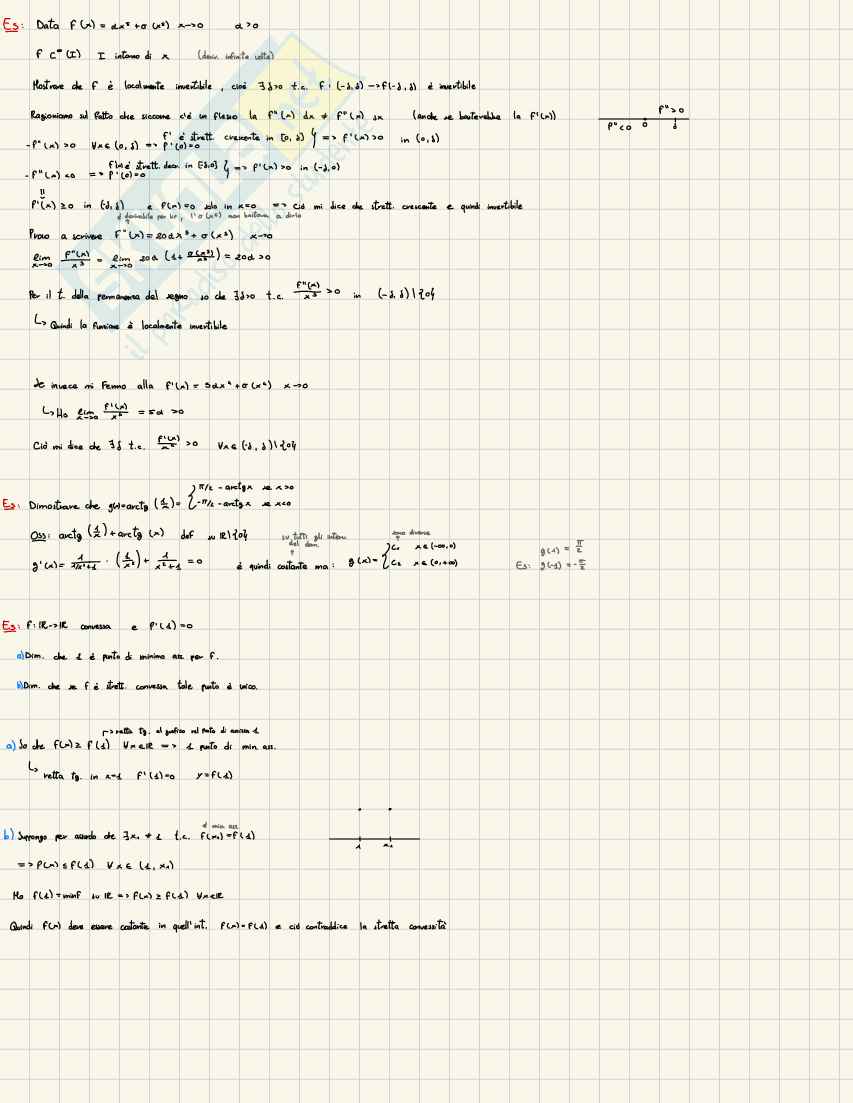 Es: Data f(x) = αx⁵ + σ(x⁵) x->0 α>0
f C^∞(I) I intorno di x (deriv. infinite volte)
Mostrare che f è localmente invertibile, cioè ∃δ>0 t.c. f: (-δ,δ) -> f(-δ,δ) è invertibile
Ragioniamo sul fatto che siccome c'è un flesso la f''(x) dx ≠ f''(x) sx (anche se basterebbe la f'(x))
f''>0
f''<0 0 δ
-f''(x) >0 ∀x∈(0,δ) => f' è strett. crescente in [0,δ] f'(0)=0 } => f'(x)>0 in (0,δ)
-f''(x) <0 => f'(x) è strett. decr. in [-δ,0] f'(0)=0 } => f'(x)>0 in (-δ,0)
f'(x) ≥0 in (-δ,δ) e f'(x)=0 solo in x=0 => Ciò mi dice che strett. crescente e quindi invertibile
è derivabile per hp, l'σ(x⁵) non bastava a dirlo
Provo a scrivere f''(x) = 20αx³ + σ(x³) x->0
lim x->0 f''(x)/x³ = lim x->0 20α (1+ σ(x³)/x³) = 20α >0
Per il t. della permanenza del segno so che ∃δ>0 t.c. f''(x)/x³ >0 in (-δ,δ)\{0}
↳ Quindi la funzione è localmente invertibile
Se invece mi fermo alla f'(x) = 5αx⁴ + σ(x⁴) x->0
↳ Ho lim x->0 f'(x)/x⁴ = 5α >0
Ciò mi dice che ∃δ t.c. f'(x)/x⁴ >0 ∀x∈(-δ,δ)\{0}
Es: Dimostrare che g(x)=arctg (1/x) = { π/2 - arctg x se x>0
-π/2 - arctg x se x<0
Oss: arctg (1/x) + arctg (x) def su ℝ\{0}
su tutti gli interv. del dom.
sono diverse
g'(x) = 1/(1/x²+1) · (1/x²) + 1/(x²+1) = 0 è quindi costante ma: g(x) = { C₁ x∈(-∞,0)
C₂ x∈(0,+∞)
Es: g(1) = π/2
g(-1) = -π/2
Es: f: ℝ->ℝ convessa e f'(1)=0
a) Dim. che 1 è punto di minimo ass per f.
b) Dim. che se f è strett. convessa tale punto è unico.
retta tg. al grafico nel punto di ascissa 1
a) So che f(x) ≥ f(1) ∀x∈ℝ => 1 punto di min ass.
↳ retta tg. in x=1 f'(1)=0 y=f(1)
è min ass
b) Suppongo per assurdo che ∃x₁ ≠ 1 t.c. f(x₁)=f(1)
1 x₁
=> f(x) ≤ f(1) ∀x∈(1,x₁)
Ma f(1)=min f su ℝ => f(x) ≥ f(1) ∀x∈ℝ
Quindi f(x) deve essere costante in quell'int. f(x)=f(1) e ciò contraddice la stretta convessità